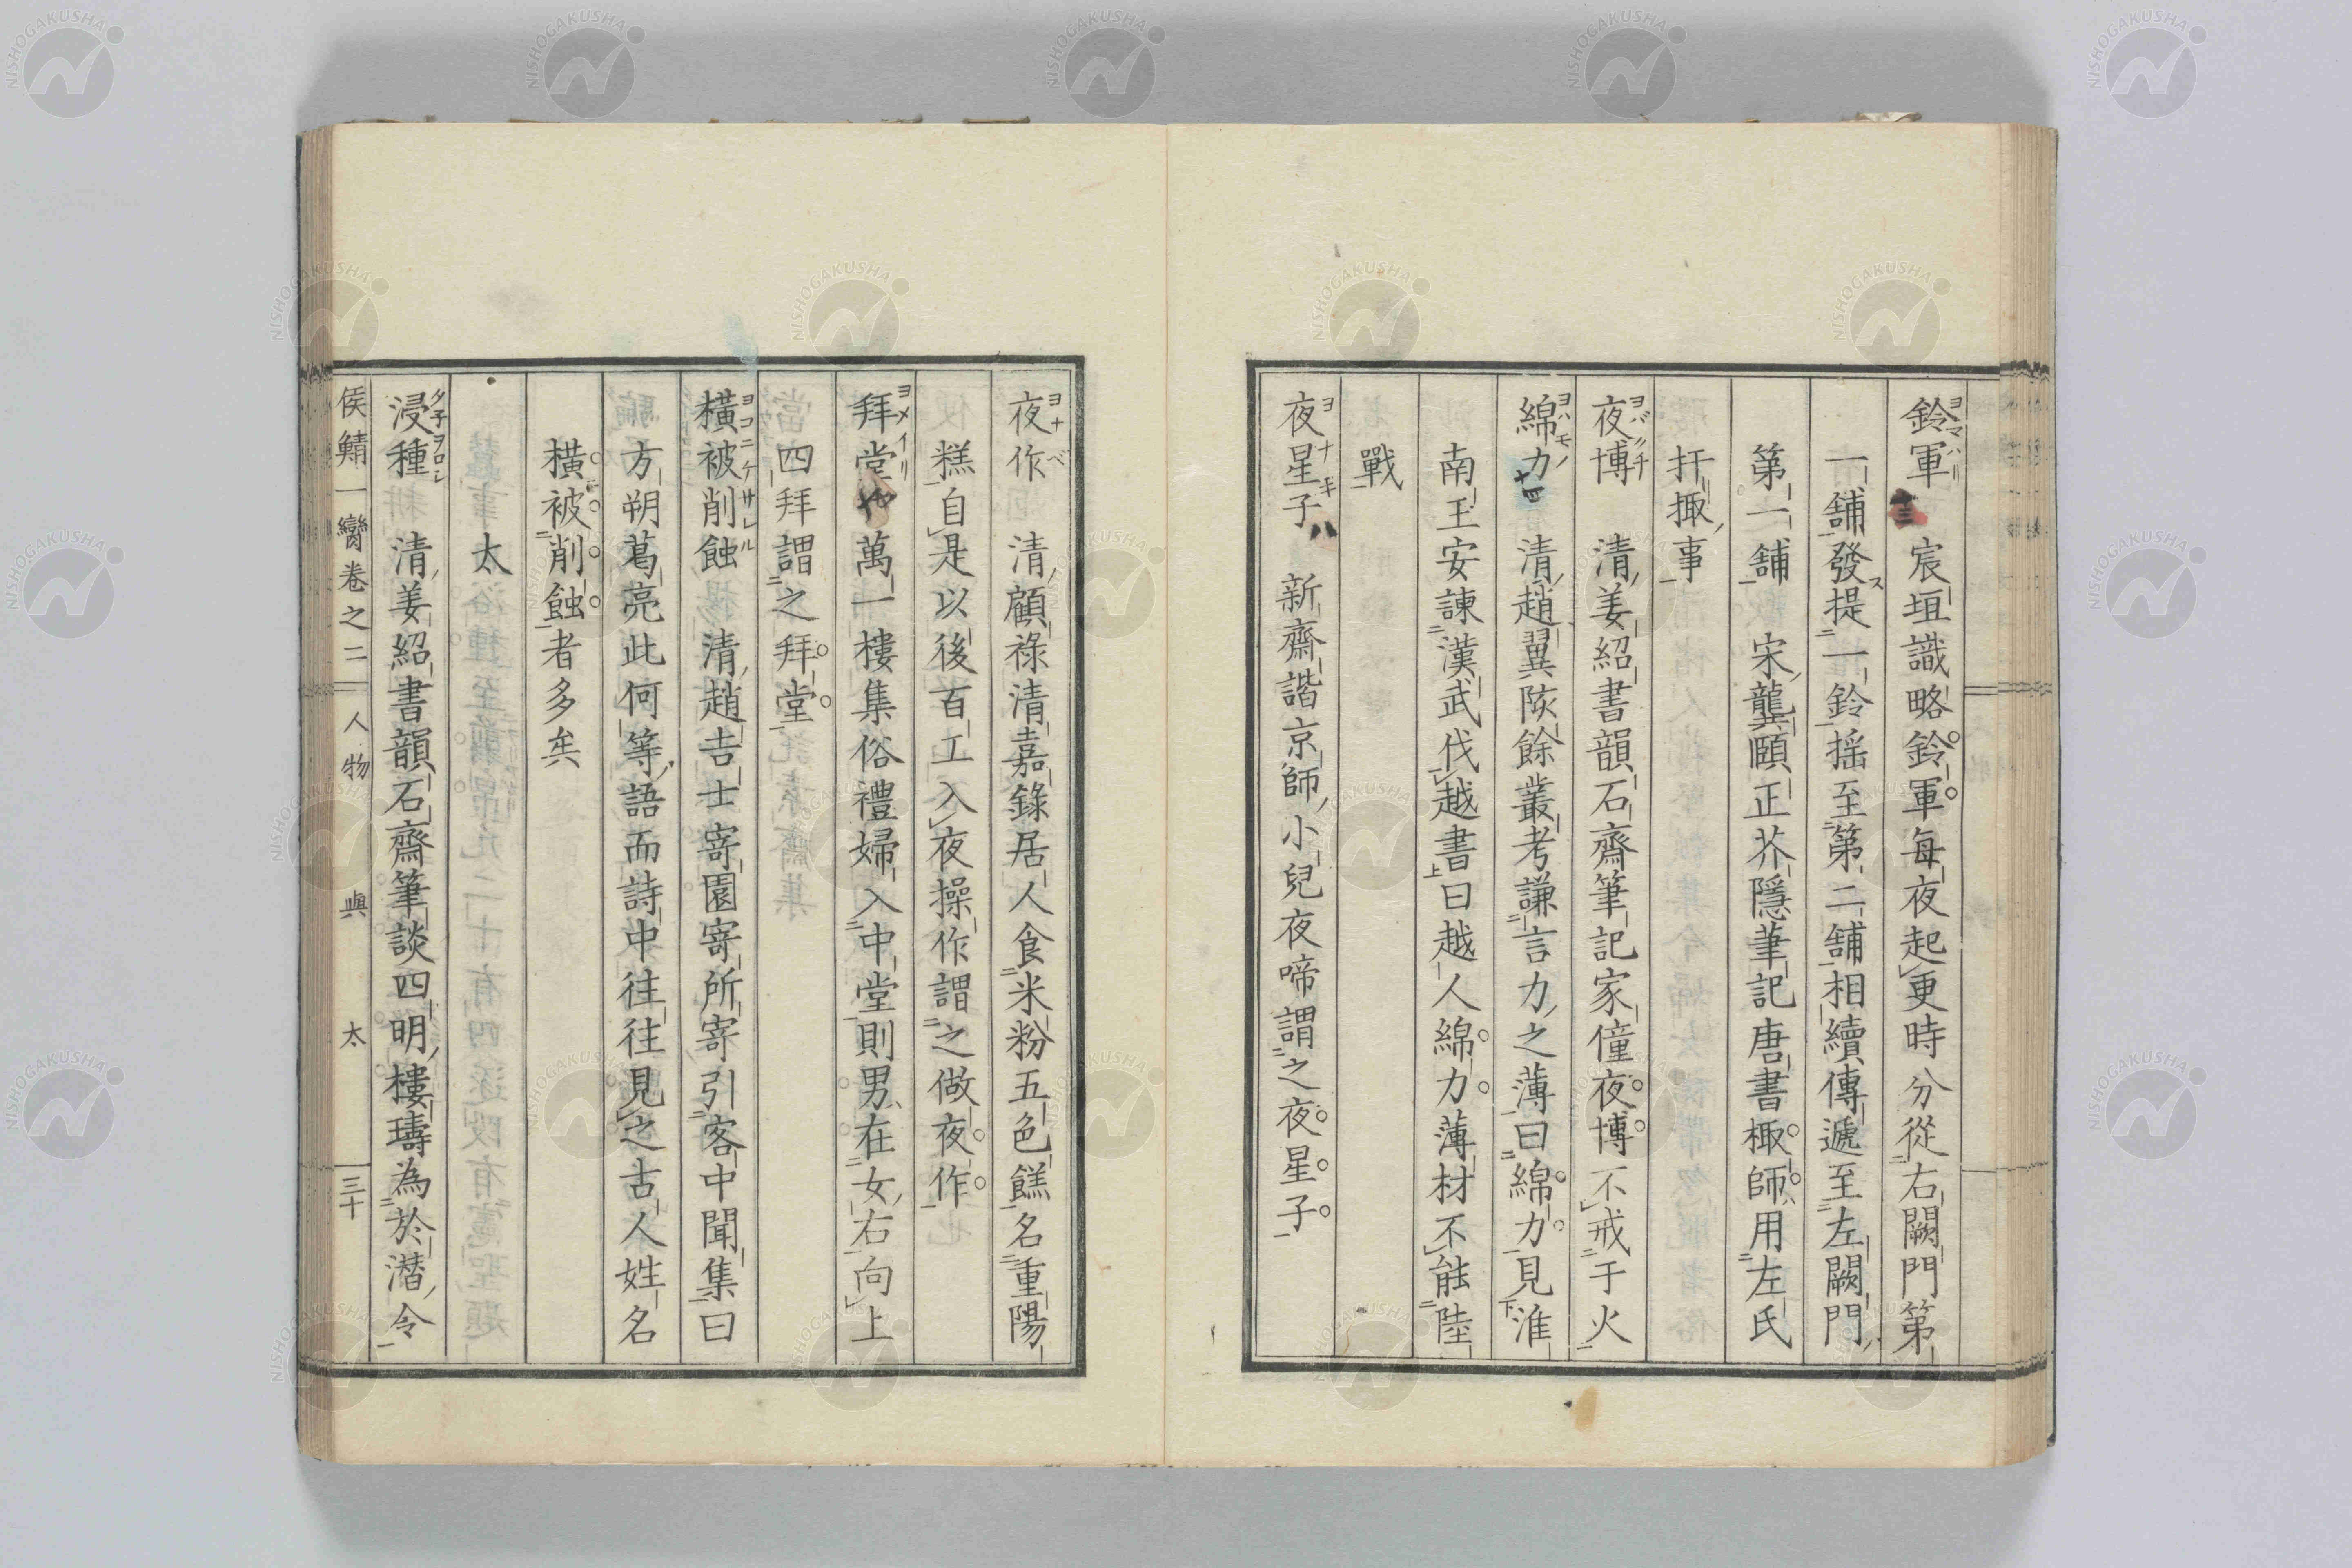 鈴軍 十三 宸垣識略鈴軍每夜起更時分從右闕門第
一舖發提一鈴搖至第二舖相續傳遞至左闕門
第一舖 宋龔頤正芥隱筆記唐書棷師用左氏
扞棷事
夜博 清姜紹書韻石齋筆記家僮夜博不戒于火
綿力 十四 清趙翼陔餘叢考謙言力之薄曰綿力見淮
南王安諫漢武伐越書曰越人綿力薄材不能陸
戰
夜星子 八 新齋諧京師小兒夜啼謂之夜星子
夜作 清顧祿清嘉錄居人食米粉五色餻名重陽
糕自是以後百工入夜操作謂之做夜作
拜堂 萬一樓集俗禮婦入中堂則男在女右向上
四拜謂之拜堂
橫被削蝕 清趙吉士寄園寄所寄引客中聞集曰
方朔葛亮此何等語而詩中往往見之古人姓名
橫被削蝕者多矣
太
浸種 清姜紹書韻石齋筆談四明樓璹為於潛令
侯鯖一臠卷之二 人物 與 太 三十
NISHOGAKUSHA